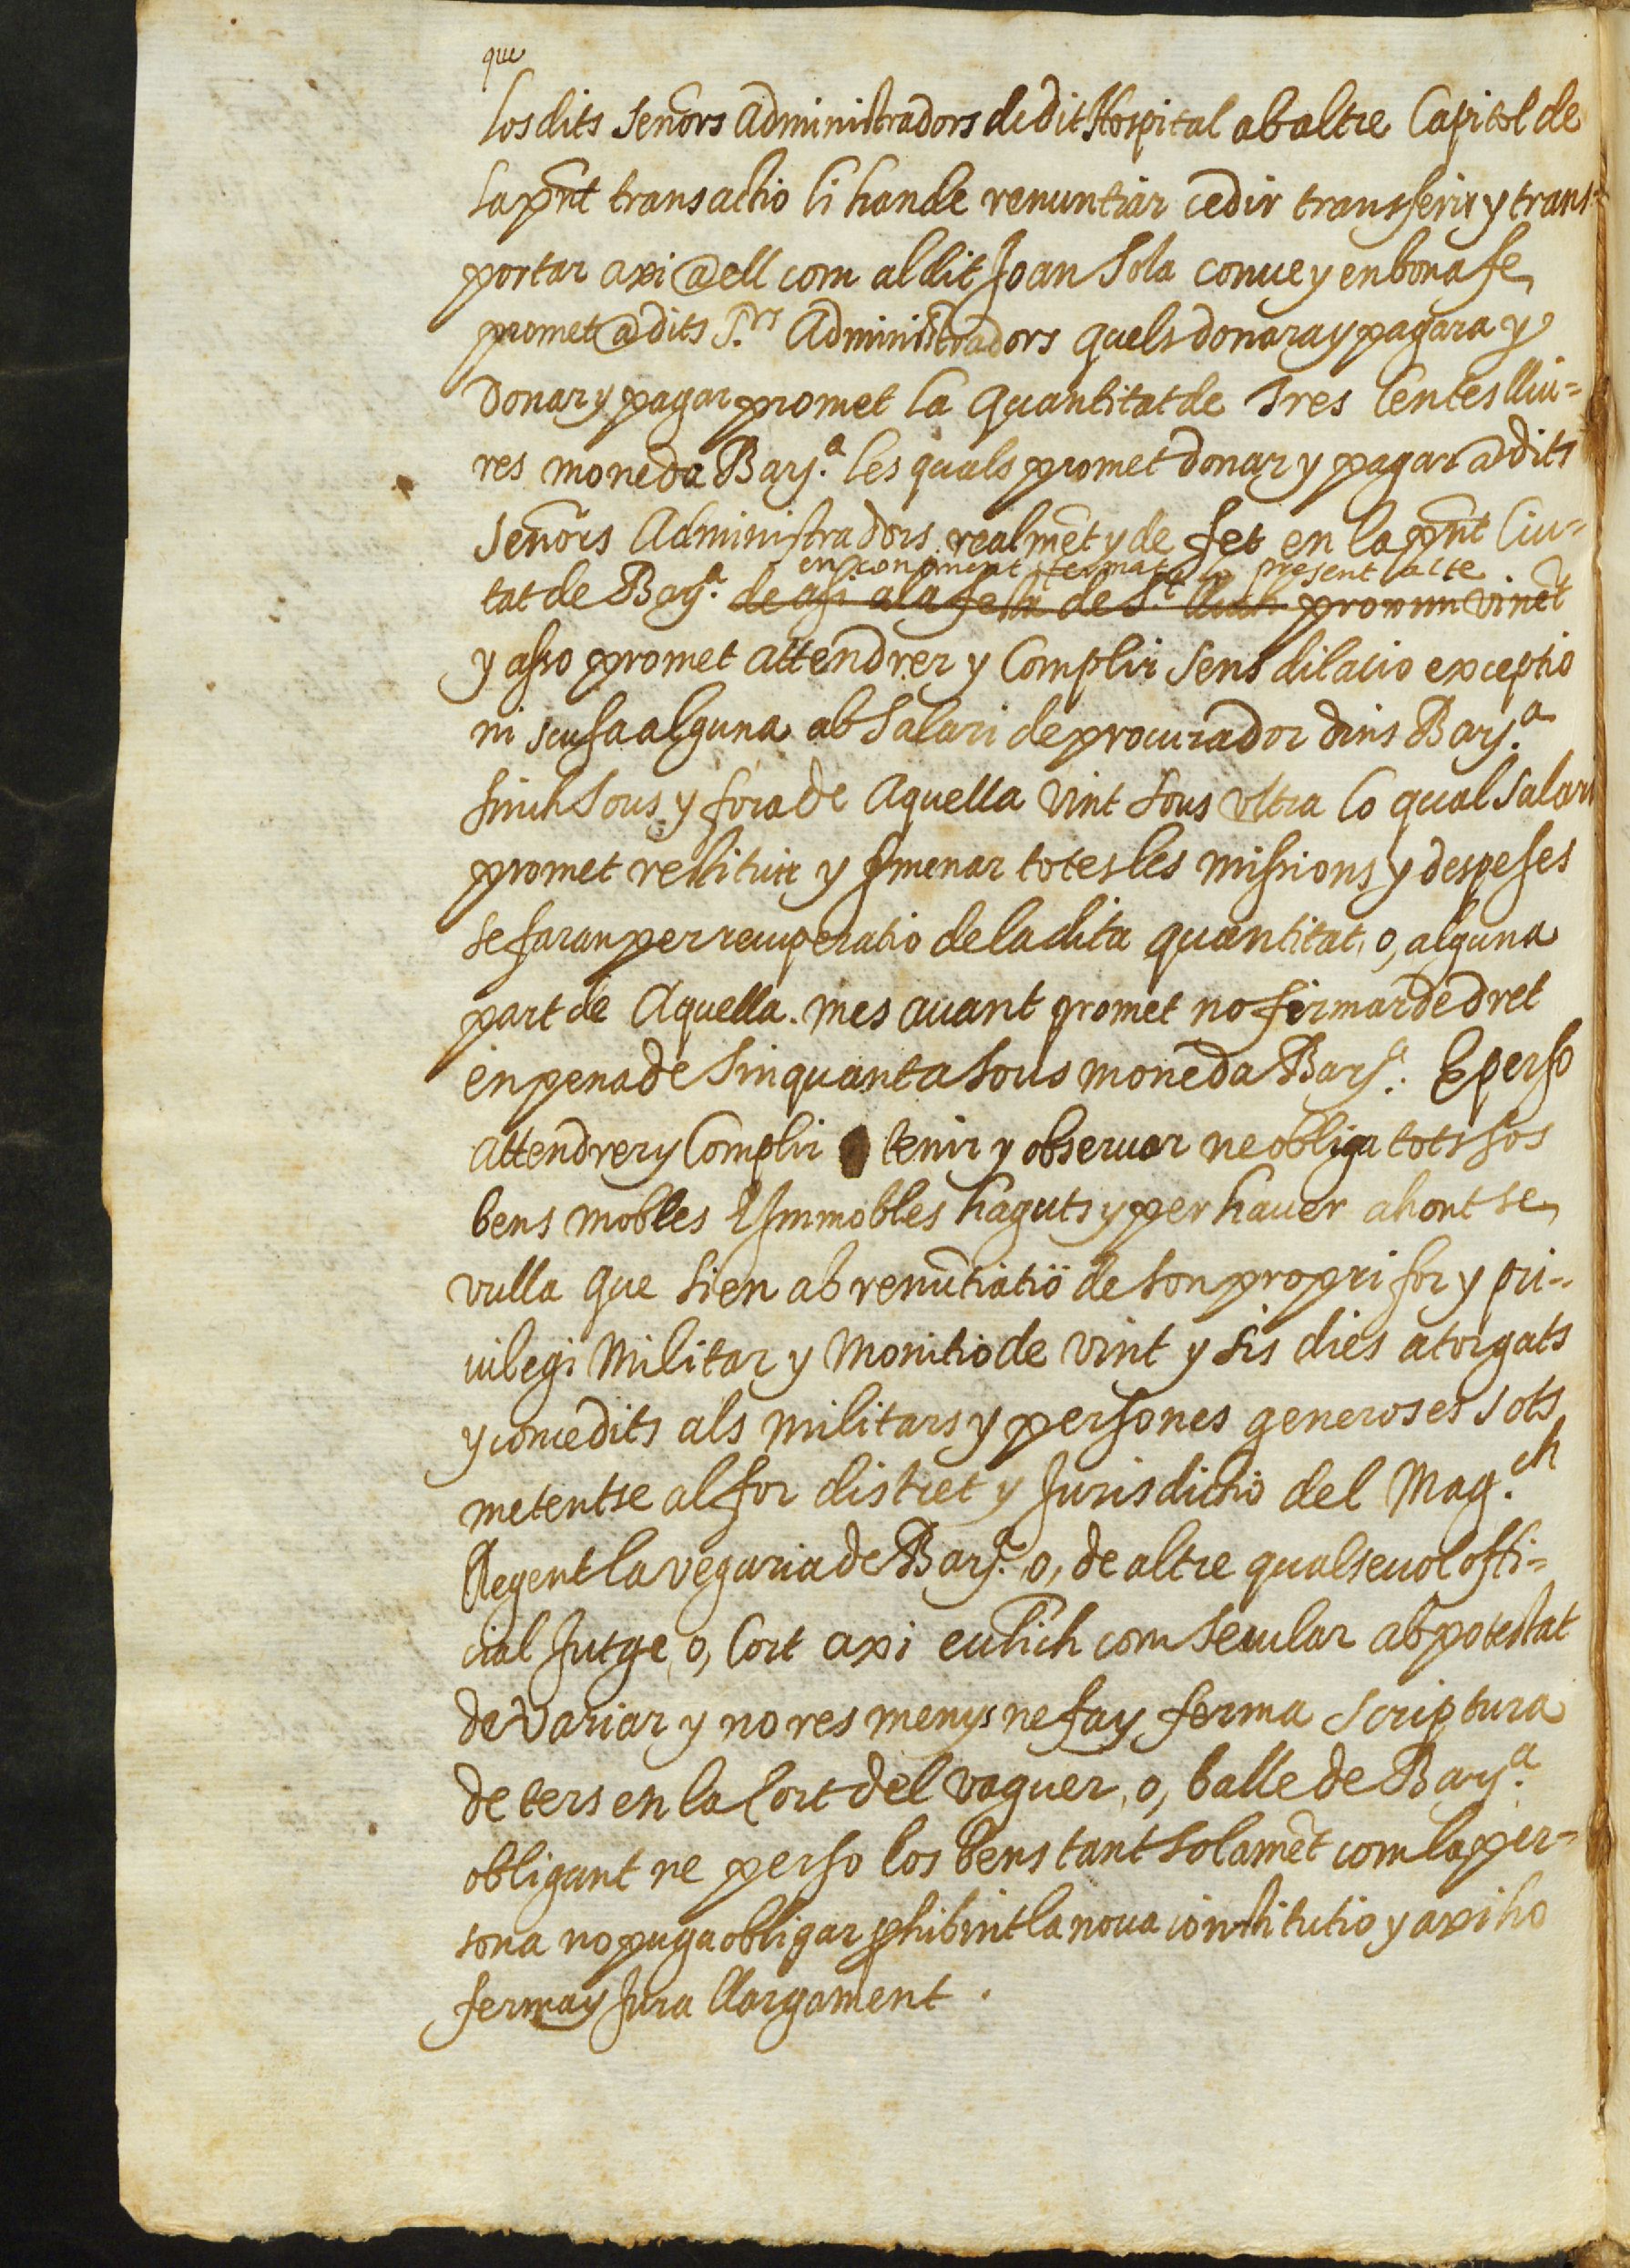 que
los dits señors Administradors de dit Hospital ab altre Capitol de
la pnt transactio li han de renuntiar cedir transferir y trans-
portar axi @ ell com al dit Joan Sola conue y en bona fe
promet @ dits S.rs Administradors quels donara y pagara y
donar y pagar promet la quantitat de Tres Centes lliu=
res moneda Barsª. les quals promet donar y pagar @ dits
señors Administradors realmēt y de fet en la pñt Ciu=
en continent fermat lo present acte
tat de Barsª. de assi a la festa de S.t Lluch prorimvinēt
y asso promet attendrer y Complir sens dilatio exceptio
ni scusa alguna ab salari de procurador dins Barsª.
sinch sous y fora de Aquella vint sous ultra lo qual salari
promet restituir y smenar totes les missions y despeses
se faran per recuperatio de la dita quantitat, o, alguna
part de Aquella. mes auant promet no firmar de dret
en pena de Sinquanta sous moneda Barsª. E perso
attendrer y Complir tenir y obseruar ne obliga tots sos
bens mobles E Immobles haguts y per hauer ahont se
vulla que sien ab renūtiatio de son propri for y pri-
uilegi Militar y Monitio de vint y sis dies atorgats
y concedits als militars y persones generoses sots
metentse al for district y Jurisdictio del Mag.ch
Regent la vegaria de Barsª. o, de altre qualseuol offi=
cial Jutge, o, Cort axi ecctīch com secular ab potestat
de variar y no res menys ne fa y ferma scriptura
de ters en la Cort del vaguer, o, balle de Barsª.
obligant ne perso los bens tant solamēt com la per=
sona no puga obligar phibint la noua constitutio y axi ho
ferma y Jura llargament.